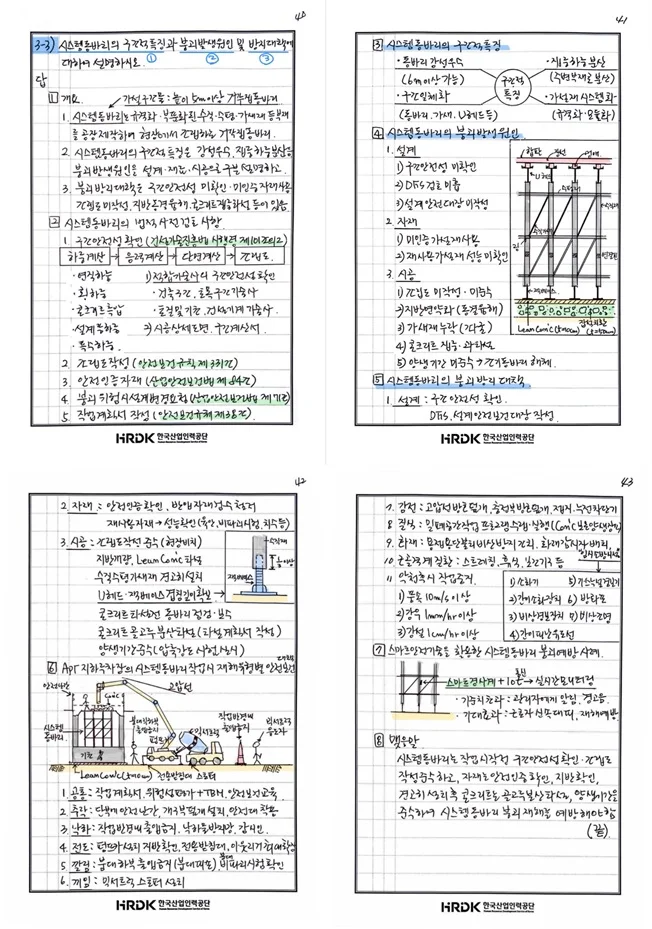 40
3-3) 시스템동바리의 구조적특징과 붕괴발생원인 및 방지대책에
대하여 설명하시오. ① ② ③
답
1 개요 가설구조물: 높이 5m이상 거푸집동바리
1. 시스템동바리는 규격화·부품화된 수직·수평·가새재 등 부재
를 공장제작하여 현장에서 조립하는 거푸집동바리.
2. 시스템동바리의 구조적 특징은 강성우수, 집중하중분산등
붕괴발생원인은 설계·재료·시공으로 구분 설명하고.
3. 붕괴방지대책은 구조안전성 미확인·미인증 자재사용
조립도 미작성, 지반
2 시스템동바리의 법적 사전검토사항
1. 구조안전성 확인 (건설기술진흥법 시행령 제101조의2)
하중계산 → 응력계산 → 단면계산 → 조립도
·연직하중 1) 적합기술사의 구조안전성확인
·횡하중 ·건축구조, 토목구조기술사
·콘크리트측압 ·토질및기초, 건설기계기술사.
·설계풍하중 2) 시공상세도면·구조계산서.
·특수하중
2. 조립도작성 (안전보건규칙 제331조)
3. 안전인증자재 (산업안전보건법 제84조)
4. 붕괴위험시설계변경요청 (산업안전보건법 제71조)
5. 작업계획서 작성 (안전보건규칙 제38조)
HRDK 한국산업인력공단
41
3 시스템동바리의 구조적 특징
·동바리 강성우수 ·집중하중분산
(6m이상가능) 구조적 (주변부재로 분산)
·구조일체화 특징 ·가설재 시스템화
(동바리, 가새, U헤드등) (규격화·모듈화)
4 시스템동바리의 붕괴발생원인
1. 설계
1) 구조안전성 미확인
2) DFS 검토미흡
3) 설계안전대장 미작성
2. 자재
1) 미인증 가설재사용
2) 재사용가설재 성능미확인
3. 시공
1) 조립도 미작성·미준수
2) 지반연약화 (동결융해)
3) 가새재 누락
4) 콘크리트 집중·과타설
5) 양생기간 미준수 → 조기동바리 해체.
합판 장선 멍에
U헤드
수평재
수직재
Lean Conc (t=10cm)
5 시스템동바리의 붕괴방지대책
1. 설계: 구조안전성 확인.
DFS, 설계안전보건대장 작성.
HRDK 한국산업인력공단
42
2. 자재: 안전인증확인, 반입자재검수철저
재사용자재 → 성능확인(육안, 비파괴시험, 치수등)
3. 시공: 조립도작성 준수 (현장비치)
지반개량, Lean Conc 타설
수직수평가새재 견고히설치
콘크리트타설전 동바리점검·보수
콘크리트 골고루분산타설 (타설계획서 작성)
양생기간준수 (압축강도시험실시)
수직재
6 APT 지하주차장의 시스템동바리작업시 재해유형별 안전보건대책
안전난간 Conc 고압선
시스템동바리
기초
펌프카 믹서트럭
작업반경내
출입금지
믹서트럭
유도자
Lean Conc (t=10cm) 전용받침대 스토퍼
1. 공통: 작업계획서, 위험성평가 + TBM, 안전보건교육.
2. 추락: 단부에 안전난간, 개구부덮개설치, 안전대 착용
3. 낙하: 작업반경내 출입금지, 낙하물방지망, 감시인.
4. 전도: 펌프카설치 지반확인, 전용받침대, 아웃리거 최대확장
5. 깔림: 붐대하부 출입금지 (붐대파손), 붐대 비파괴시험확인
6. 끼임: 믹서트럭 스토퍼 설치
HRDK 한국산업인력공단
43
7. 감전: 고압선방호덮개, 충전부방호덮개, 접지, 누전차단기
8. 질식: 밀폐공간작업프로그램수립·실행 (Conc 보온양생장소)
9. 화재: 용접용단불티비산방지조치, 화재감시자 배치,
10. 근골격계질환: 스트레칭, 휴식, 보조기구 등
11. 악천후시 작업중지.
1) 풍속 10m/s 이상
2) 강우 1mm/hr이상
3) 강설 1cm/hr이상
임시소방시설
1) 소화기 5) 가스누설경보기
2) 간이소화장치 6) 방화포
3) 비상경보장치 7) 비상조명
4) 간이피난유도선
7 스마트안전기술을 활용한 시스템동바리 붕괴예방 사례.
스마트경사계 + IoT 통신 → 실시간모니터링
·기술적효과: 관리자에게 알림, 경고음.
·기대효과: 근로자 신속대피, 재해예방.
8 맺음말
시스템동바리는 작업시작전 구조안전성 확인·조립도
작성준수하고, 자재는 안전인증확인, 지반확인,
견고히 설치후 콘크리트는 골고루분산타설, 양생기간을
준수하여 시스템동바리 붕괴재해를 예방해야함
(끝)
HRDK 한국산업인력공단